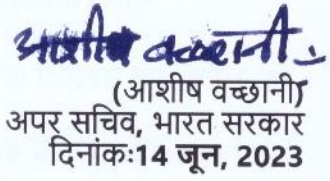 आशीष वच्छानी
(आशीष वच्छानी)
अपर सचिव, भारत सरकार
दिनांकः14 जून, 2023